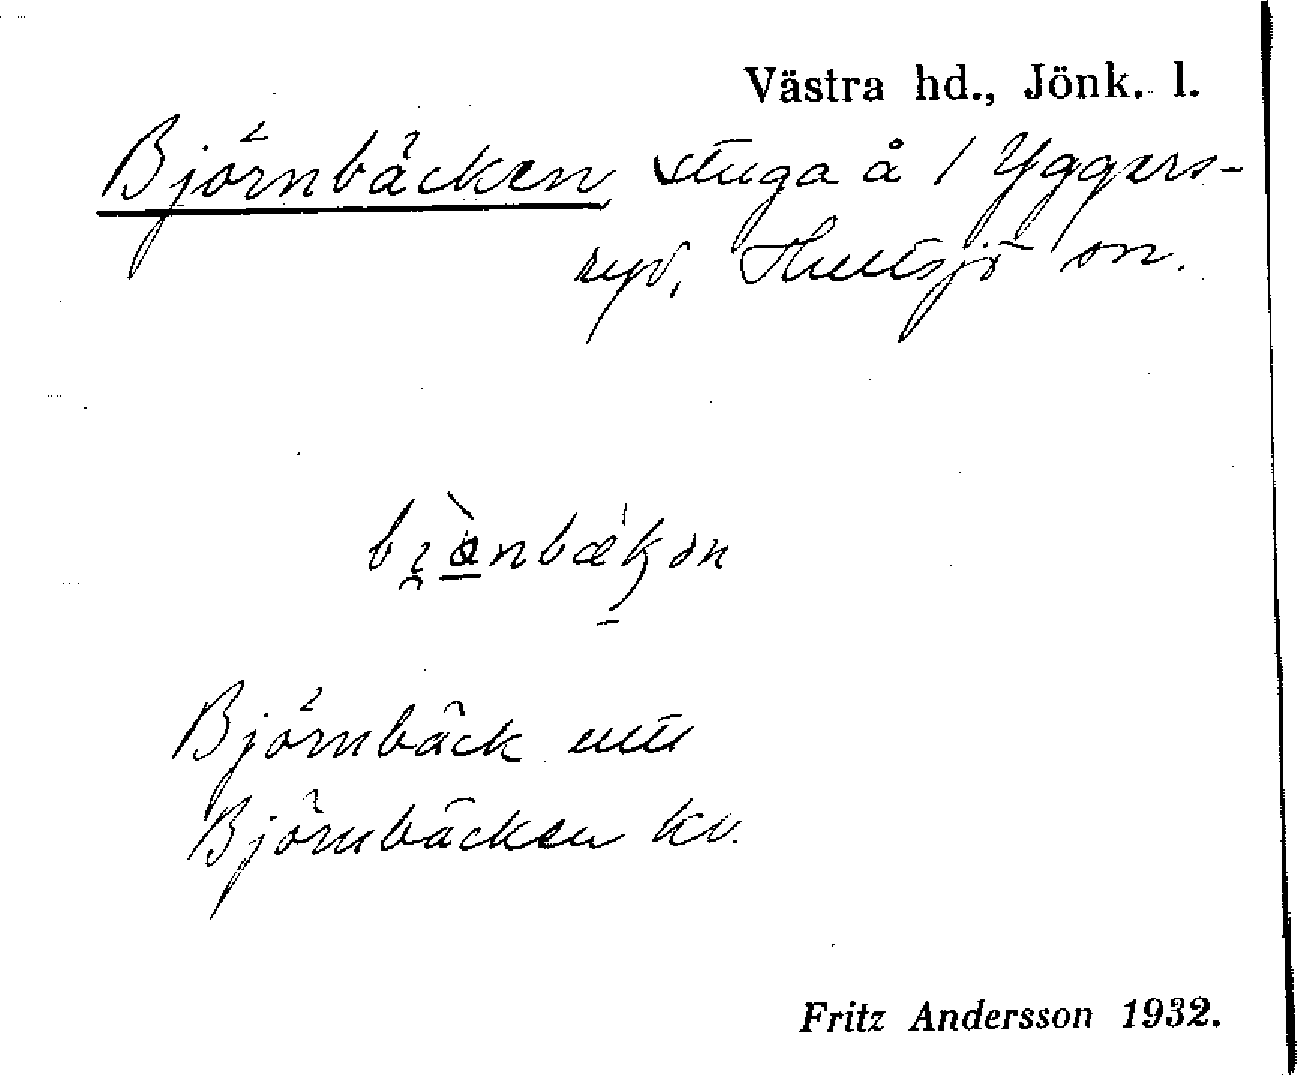 Västra hd., Jönk. l.
Björnbäcken stuga å / Yggers-
ryd, Hultsjö sn.
Björnbäck utt
Björnbäcken kv.
Fritz Andersson 1932.